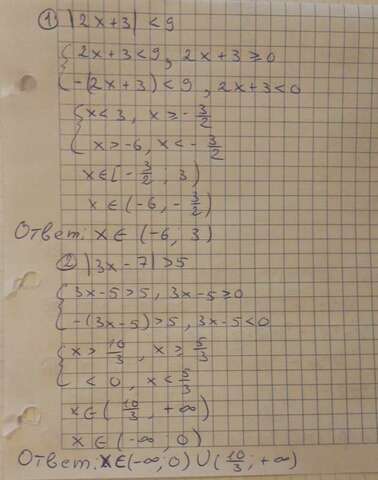 ① |2x+3| < 9
{ 2x+3<9, 2x+3≥0
{ -(2x+3)<9, 2x+3<0
{ x<3, x≥-3/2
{ x>-6, x<-3/2
x∈[-3/2; 3)
x∈(-6, -3/2)
Ответ: x∈(-6; 3)
② |3x-7|>5
{ 3x-5>5, 3x-5≥0
{ -(3x-5)>5, 3x-5<0
{ x>10/3, x≥5/3
{ <0, x<5/3
x∈(10/3, +∞)
x∈(-∞; 0)
Ответ: x∈(-∞; 0)∪(10/3; +∞)